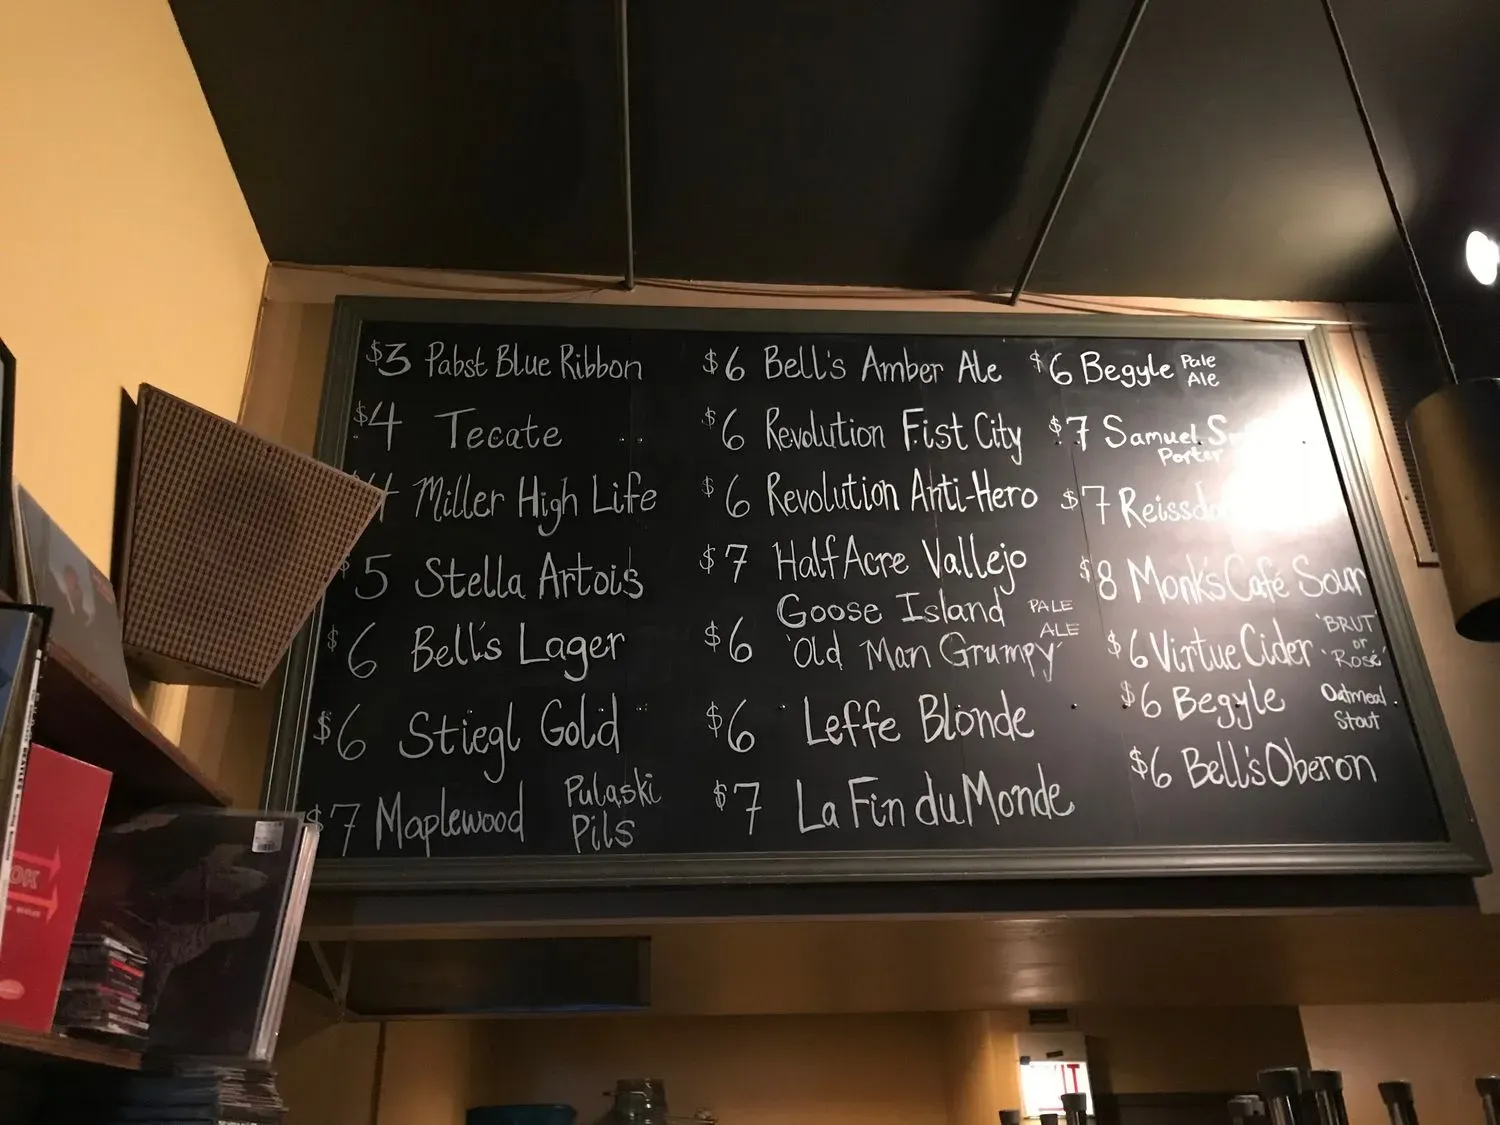 $3 Pabst Blue Ribbon
$4 Tecate
4 Miller High Life
$5 Stella Artois
$6 Bell's Lager
$6 Stiegl Gold
$7 Maplewood Pulaski
Pils
$6 Bell's Amber Ale
$6 Revolution Fist City
$6 Revolution Anti-Hero
$7 Half Acre Vallejo
$6 Goose Island PALE
'Old Man Grumpy' ALE
$6 Leffe Blonde
$7 La Fin du Monde
$6 Begyle Pale
Ale
$7 Samuel
Porter
$7
$8 Monk's Café Sour
$6 Virtue Cider 'BRUT'
or
'Rosé'
$6 Begyle Oatmeal
Stout
$6 Bell's Oberon